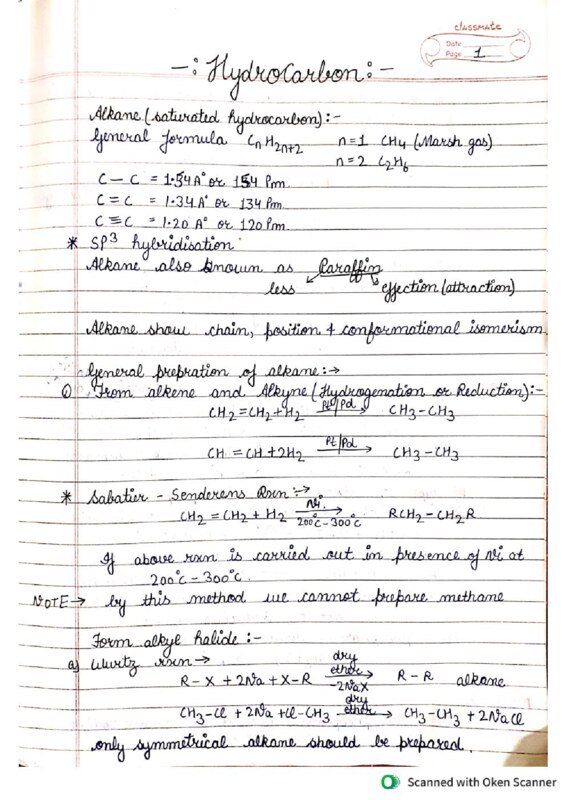 classmate
Date
Page 1
-: Hydrocarbon :-
Alkane (saturated hydrocarbon) :-
General formula CnH2n+2 n=1 CH4 (Marsh gas)
n=2 C2H6
C - C = 1.54 A° or 154 Pm.
C = C = 1.34 A° or 134 Pm.
C ≡ C = 1.20 A° or 120 Pm.
* SP3 hybridisation
Alkane also known as Paraffin
less effection (attraction)
Alkane show chain, position & conformational isomerism
General prepration of alkane :→
① From alkene and Alkyne (Hydrogenation or Reduction) :-
CH2=CH2 + H2 Pt/Pd → CH3-CH3
CH = CH + 2H2 Pt/Pd → CH3-CH3
* Sabatier - Senderens Rxn :→
CH2 = CH2 + H2 Ni. 200°C-300°C → RCH2-CH2R
If above rxn is carried out in presence of Ni at
200°C - 300°C.
NOTE → by this method we cannot prepare methane
Form alkyl halide :-
a) Wurtz rxn →
R-X + 2Na + X-R dry ether -2NaX → R-R alkane
CH3-Cl + 2Na + Cl-CH3 dry ether → CH3-CH3 + 2NaCl
only symmetrical alkane should be prepared.
Scanned with Oken Scanner